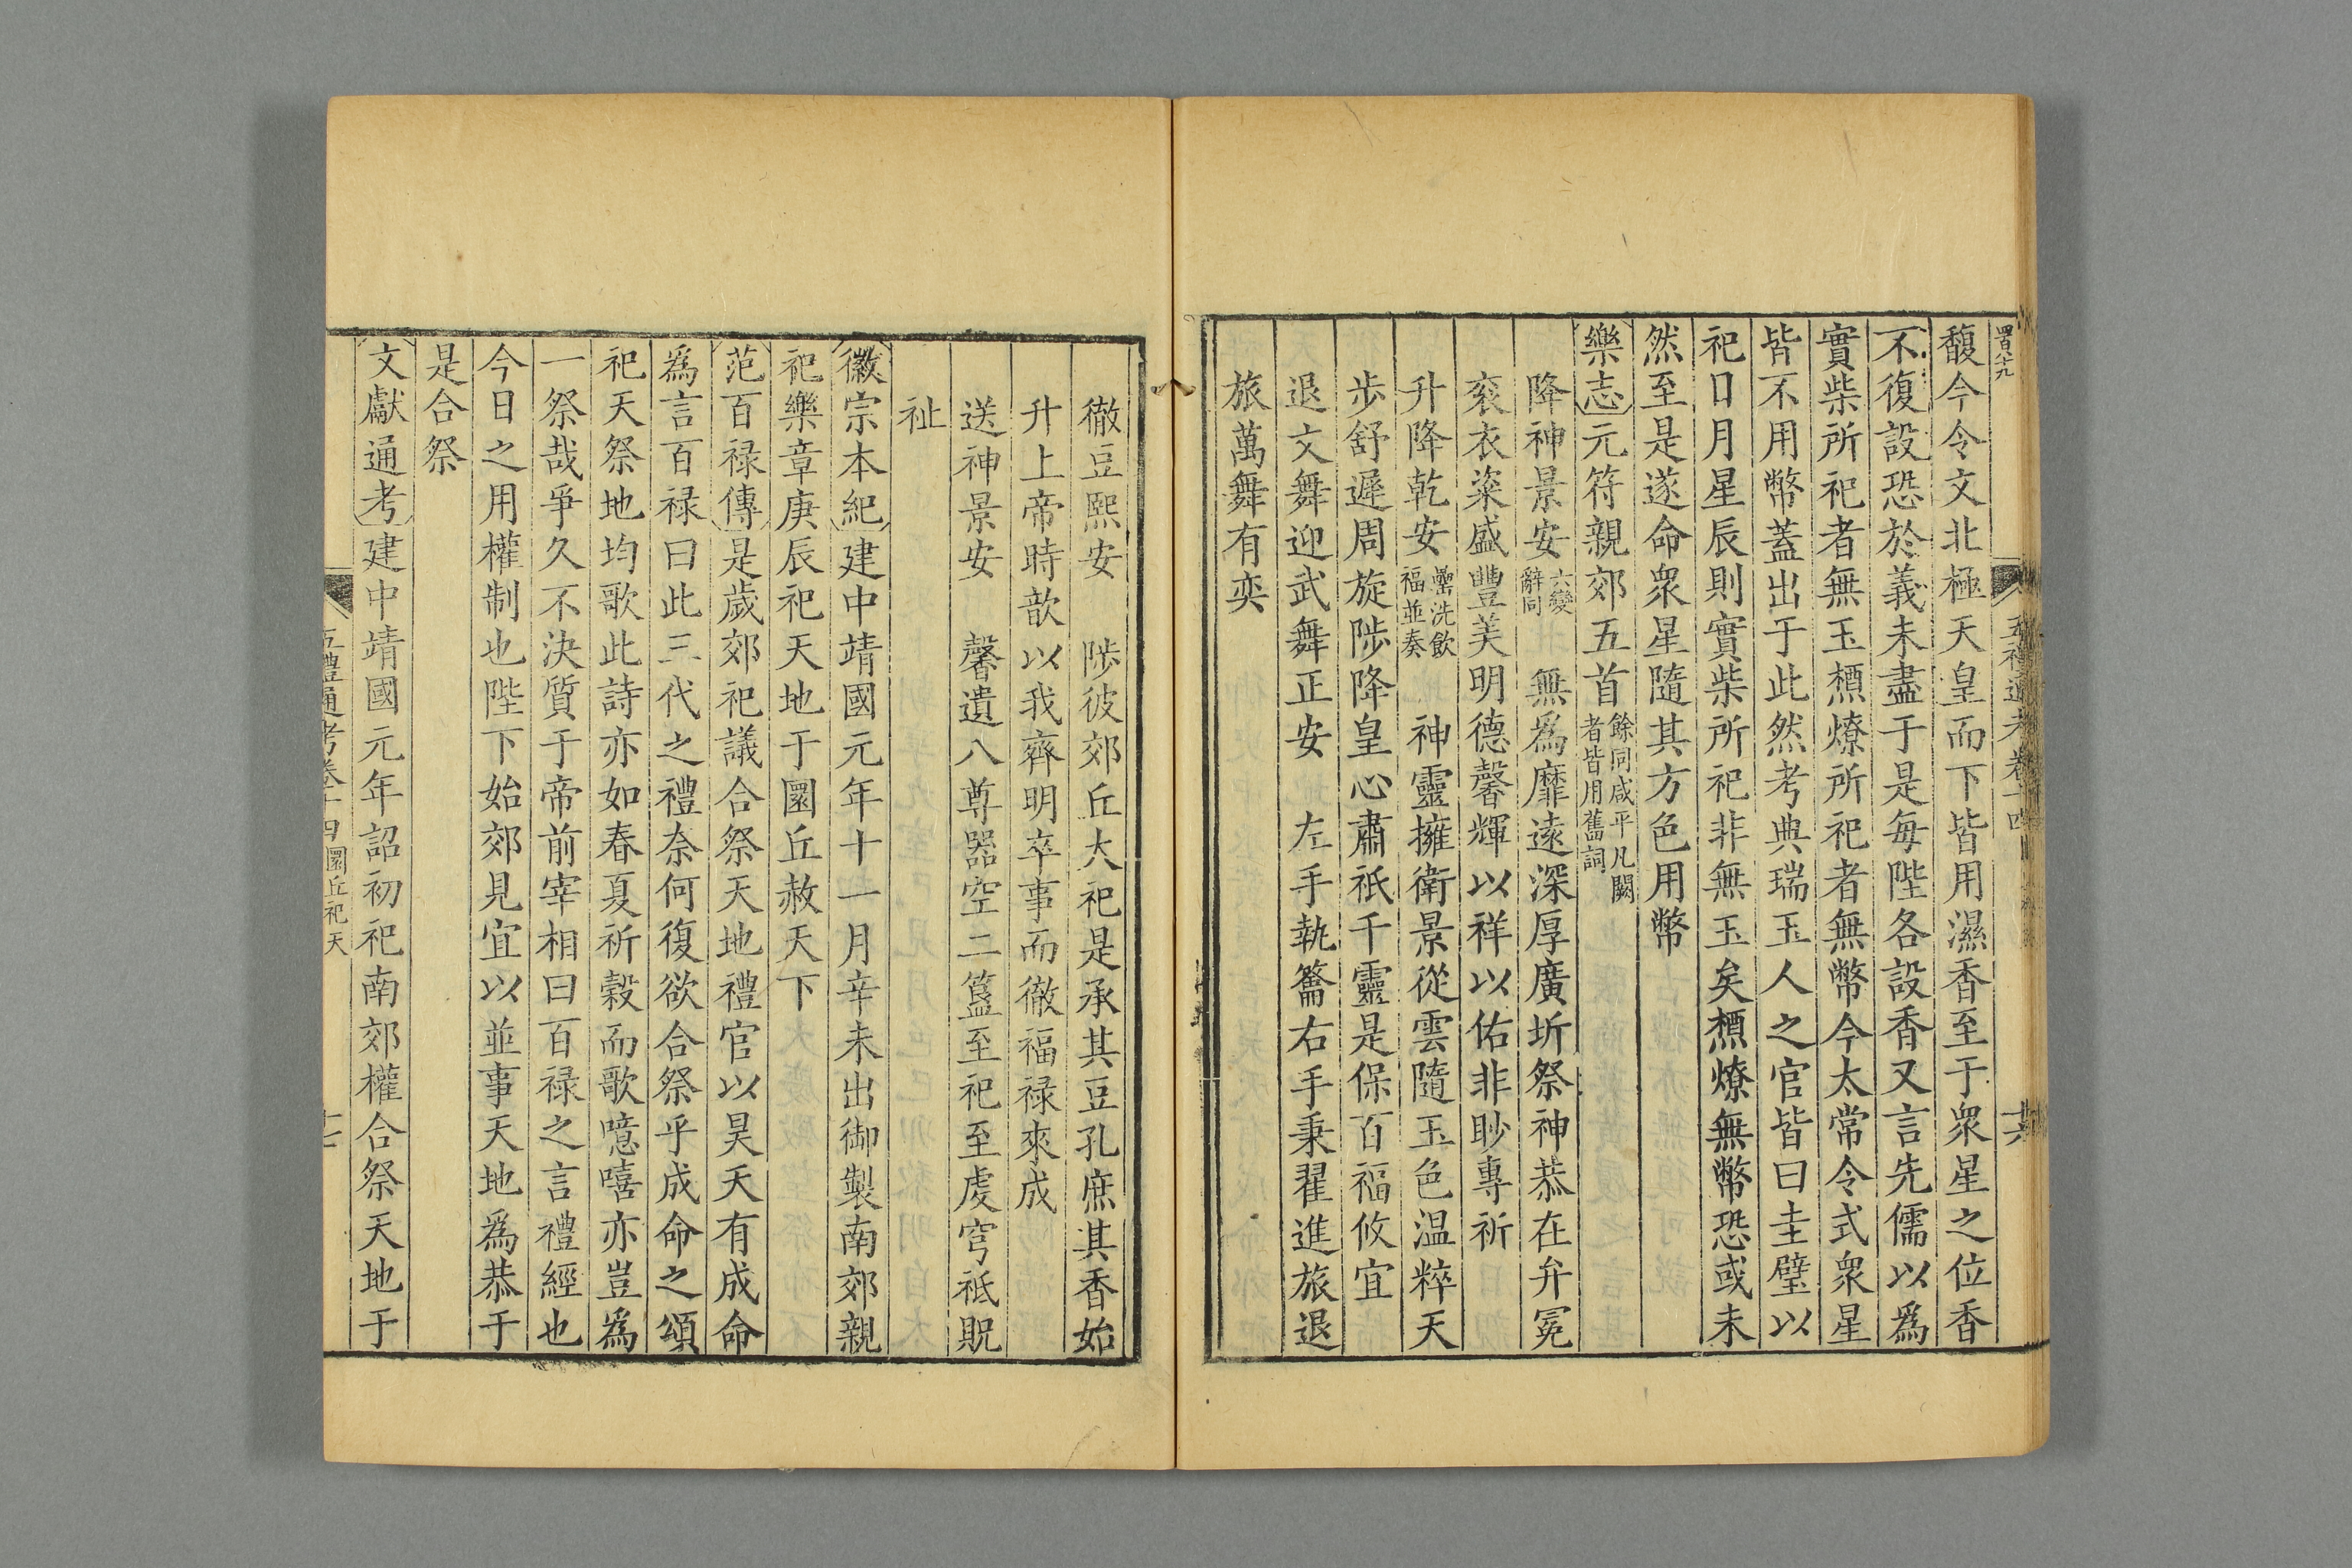 四百八十九
五禮通考卷十四
十六
馥今令文北極天皇而下皆用濕香至于衆星之位香
不復設恐於義未盡于是每陛各設香又言先儒以爲
實柴所祀者無玉槱燎所祀者無幣今太常令式衆星
皆不用幣蓋出于此然考典瑞玉人之官皆曰圭璧以
祀日月星辰則實柴所祀非無玉矣槱燎無幣恐或未
然至是遂命衆星隨其方色用幣
樂志元符親郊五首餘同咸平凡闕者皆用舊詞
降神景安六變辭同 無爲靡遠深厚廣圻祭神恭在弁冕
衮衣粢盛豐美明德馨輝以祥以佑非眇專祈
升降乾安罍洗飲福並奏 神靈擁衛景從雲隨玉色温粹天
步舒遲周旋陟降皇心肅祇千靈是保百福攸宜
退文舞迎武舞正安 左手執籥右手秉翟進旅退
旅萬舞有奕
徹豆熙安 陟彼郊丘大祀是承其豆孔庶其香始
升上帝時歆以我齊明卒事而徹福禄來成
送神景安 馨遺八尊器空二簋至祀至虔穹祗貺
祉
徽宗本紀建中靖國元年十一月辛未出御製南郊親
祀樂章庚辰祀天地于圜丘赦天下
范百禄傳是歲郊祀議合祭天地禮官以昊天有成命
爲言百禄曰此三代之禮奈何復欲合祭乎成命之頌
祀天祭地均歌此詩亦如春夏祈穀而歌噫嘻亦豈爲
一祭哉爭久不決質于帝前宰相曰百禄之言禮經也
今日之用權制也陛下始郊見宜以並事天地爲恭于
是合祭
文獻通考建中靖國元年詔初祀南郊權合祭天地于
五禮通考卷十四圜丘祀天
十七